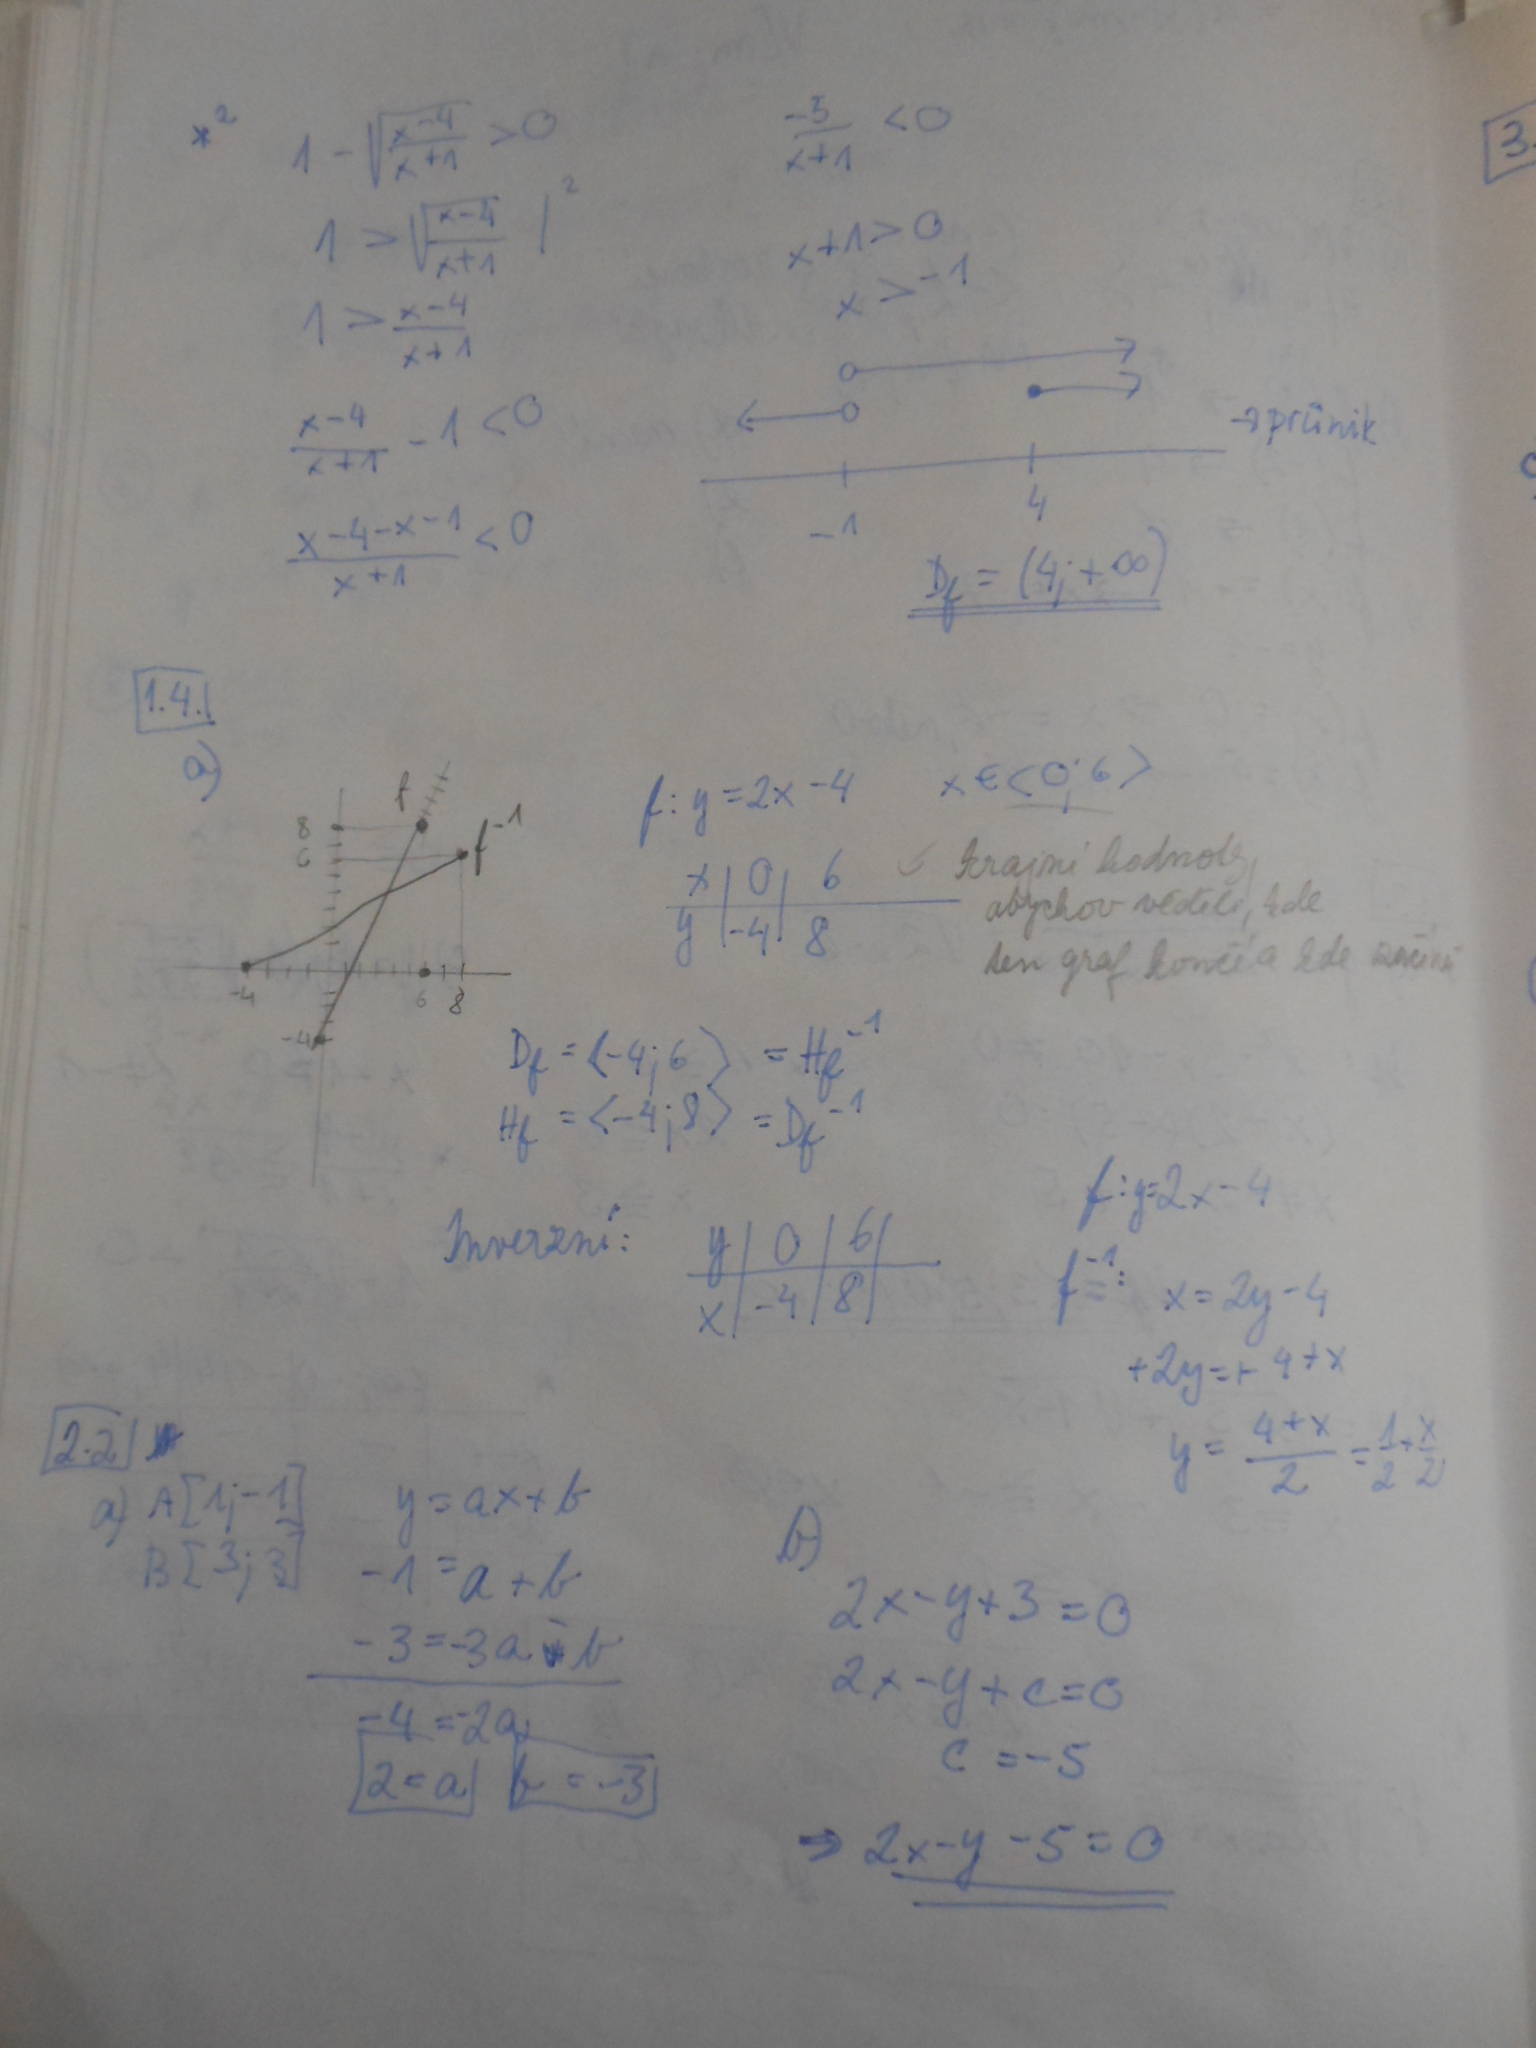 *²
1 - √((x-4)/(x+1)) > 0
1 > √((x-4)/(x+1)) |²
1 > (x-4)/(x+1)
(x-4)/(x+1) - 1 < 0
(x-4-x-1)/(x+1) < 0
-5/(x+1) < 0
x+1 > 0
x > -1
→ průnik
-1 4
Df = (4; +∞)
1.4.
a)
f
f⁻¹
8
6
-4 6 8
-4
f: y = 2x - 4 x ∈ <0; 6>
x | 0 | 6
y | -4 | 8
krajní hodnoty,
abychov věděli, kde
ten graf končí a kde začíná
Df = <-4; 6> = Hf⁻¹
Hf = <-4; 8> = Df⁻¹
Inverzní:
y | 0 | 6 |
x | -4 | 8 |
f: y = 2x - 4
f⁻¹: x = 2y - 4
+2y = + 4 + x
y = (4+x)/2 = 1/2 + x/2
2.2
a) A[1; -1]
B[3; 3]
y = ax + b
-1 = a + b
-3 = -3a - b
-4 = -2a
2 = a b = -3
b)
2x - y + 3 = 0
2x - y + c = 0
c = -5
⇒ 2x - y - 5 = 0
3.